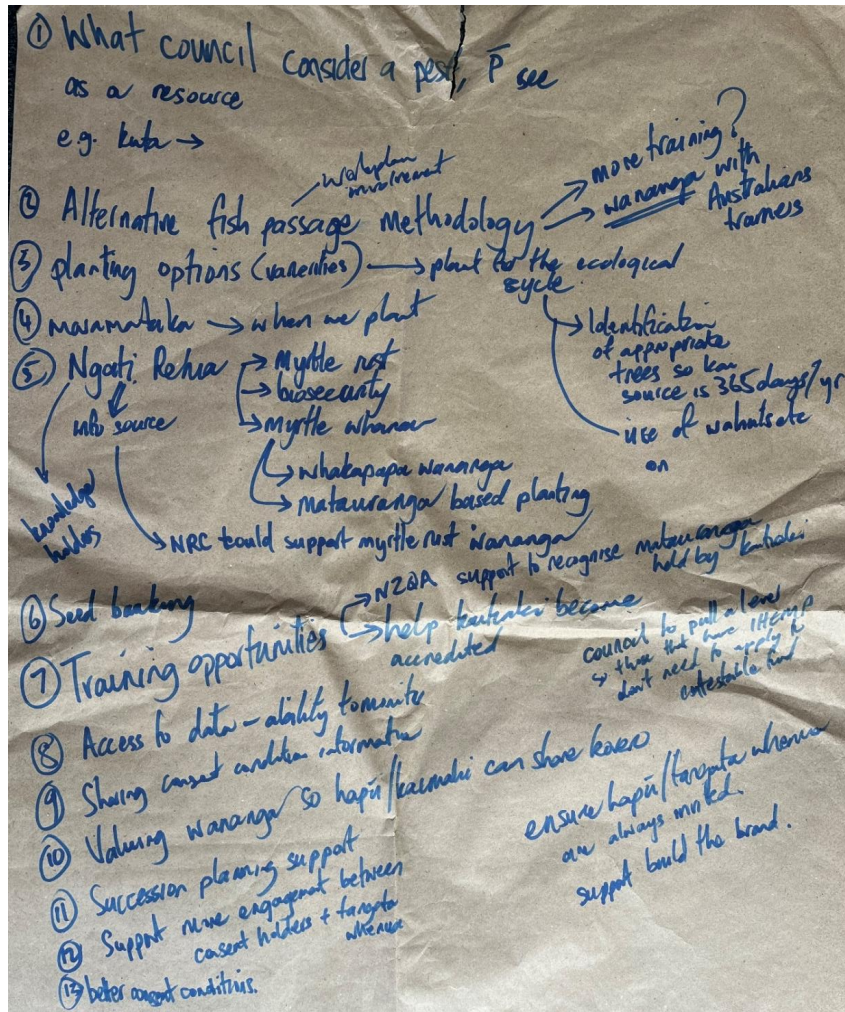 ① What council consider a pest, P̄ see
as a resource
e.g. kuta →
② Alternative fish passage methodology
workplan
involvement
→ more training?
→ wananga with
Australians
trainers
③ planting options (varieties) → plant to the ecological
cycle
→ Identification
of appropriate
trees so kai
source is 365 days/yr
use of walnuts etc
on
④ maramataka → when we plant
⑤ Ngati Rehua → Myrtle rust
→ biosecurity
→ Myrtle whanau
info source
→ whakapapa wananga
→ matauranga based planting
knowledge
holders
→ NRC could support myrtle rust wananga
⑥ Seed banking
⑦ Training opportunities → NZQA support to recognise matauranga
held by kaitiaki
→ help kaitiaki become
accredited
council to pull a lever
so those that have IHEMP
don't need to apply to
contestable fund
⑧ Access to data – ability to monitor
⑨ Sharing consent condition information
⑩ Valuing wananga so hapū/kaimahi can share korero
ensure hapū/tangata whenua
are always invited.
support build the brand.
⑪ Succession planning support
⑫ Support more engagement between
consent holders + tangata
whenua
⑬ better consent conditions.